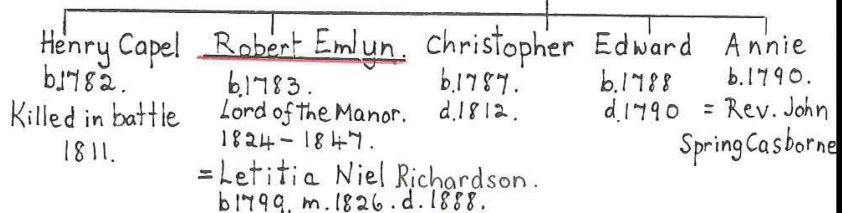 Henry Capel
b.1782.
Killed in battle
1811.
Robert Emlyn.
b.1783.
Lord of the Manor.
1824 - 1847.
= Letitia Niel Richardson.
b1799. m.1826. d.1888.
Christopher
b.1787.
d.1812.
Edward
b.1788
d.1790
Annie
b.1790.
= Rev. John
Spring Casborne